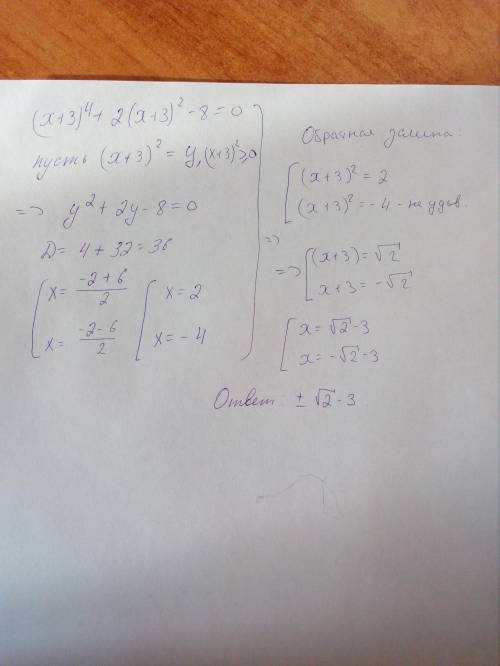 (x+3)⁴ + 2(x+3)² - 8 = 0
пусть (x+3)² = y, (x+3)² ≥ 0
=> y² + 2y - 8 = 0
D = 4 + 32 = 36
[ x = (-2+6)/2 [ x = 2
x = (-2-6)/2 x = -4
=>
Обратная замена:
[ (x+3)² = 2
(x+3)² = -4 - не удов.
=> [ (x+3) = √2
x+3 = -√2
[ x = √2 - 3
x = -√2 - 3
Ответ: ± √2 - 3